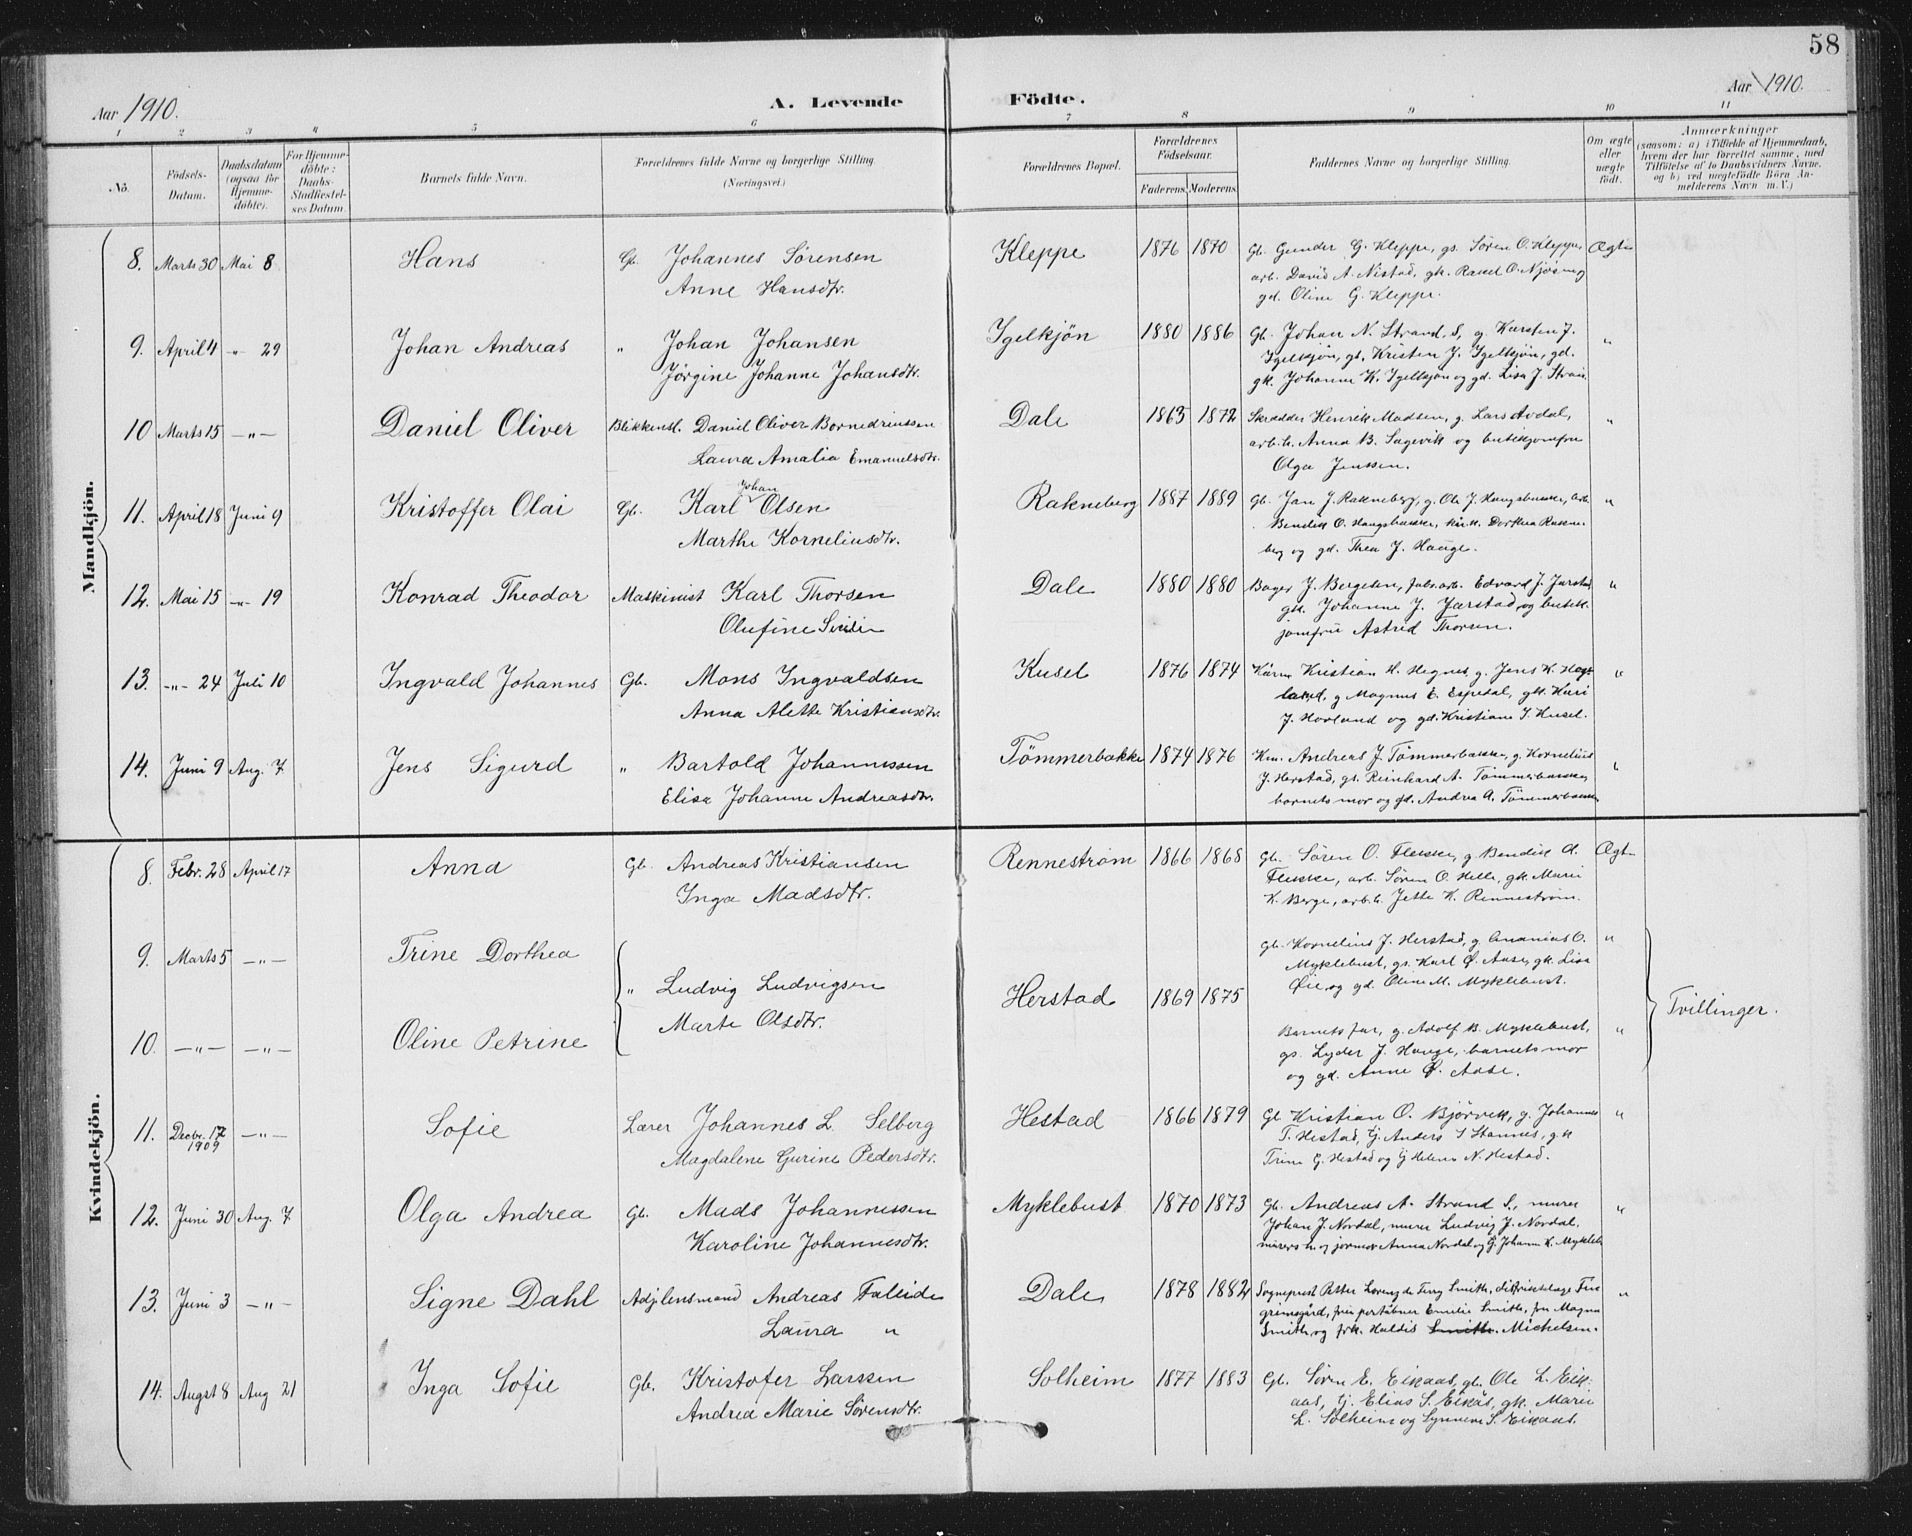 58
Aar 1910.
A. Levende Födte.
Aar 1910.
1 2 3 4 5 6 7 8 9 10 11
No.
Födsels-Datum.
Daabsdatum (ogsaa for Hjemme-döbte).
For Hjemme-döbte: Daabs-Stadfæstel-ses Datum
Barnets fulde Navn.
Forældrenes fulde Navne og borgerlige Stilling (Næringsvei.)
Forældrenes Bopæl.
Forældrenes Födselsaar.
Faderens Moderens
Faddernes Navne og borgerlige Stilling.
Om ægte eller uægte födt.
Anmærkninger
(saasom: a) i Tilfælde af Hjemmedaab, hvem der har forrettet samme, med Tilföielse af to Daabsvidners Navne, og b) ved uægtefödte Börn An-melderens Navn m. V.)
Mandkjön.
8. Marts 30 Mai 8 Hans Gb. Johannes Sörensen Kleppe 1876 1870 Gb. Gunder G. Kleppe, gs. Sören O. Kleppe, Ægte
Anne Hansdtr. arb. David A. Nistad, gk. Rakel O. Njösen og
gd. Oline G. Kleppe.
9. April 4 -"- 29 Johan Andreas " Johan Johansen Igelkjön 1880 1886 Gb. Johan N. Strand, S, g. Karsten J. "
Jörgine Johanne Johansdtr. Igelkjön, gs. Kristen J. Igelkjön, gd.
gk. Johanne K. Igelkjön og gd. Lisa J. Strand.
10 Marts 15 -"- Daniel Oliver Blikkensl. Daniel Oliver Dale 1863 1872 Skrædder Henrik Madsen, g. Lars Avdal, "
Laura Amalia Emanuelsdtr. arb.h. Anna B. Sagevik og butikjomfru
Olga Jenssen.
11. April 18 Juni 9 Kristoffer Olai Gb. Karl Johan Olsen Rakneberg 1887 1889 Gb. Jan J. Rakneberg, g. Ole J. Haugsbakke, arb. "
Marthe Korneliusdtr. Bendik O. Haugsbakke, kår.k. Dorthea Rakne-
berg og gd. Thea J. Hauge.
12. Mai 15 -"- 19 Konrad Theodor Maskinist Karl Thorsen Dale 1880 1880 Bager J. Bergelin, fabr.arb. Edvard J. Jarstad "
Olufine gk. Johanne J. Jarstad og butik-
jomfru Astrid Thorsen.
13. -"- 24 Juli 10 Ingvald Johannes Gb. Mons Ingvaldsen Kusel 1876 1874 Kårm. Kristian H. Hegnes, g. Jens K. "
Anna Alette Kristiansdtr. g Magnus E. Espedal, gk. Kari
J. Hovland og gd. Kristiane I. Husel.
14. Juni 9 Aug. 7 Jens Sigurd " Bartold Johannessen Tömmerbakke 1874 1876 Km. Andreas J. Tömmerbakke, g. Kornelius "
Elisa Johanne Andreasdtr. J. Herstad, gs. Reinhard A. Tömmerbakke,
barnets mor og gd. Andrea A. Tömmerbakke
Kvindekjön.
8. Febr. 28 April 17 Anna Gb. Andreas Kristiansen Rennestrøm 1866 1868 Gb. Sören O. Flekke, g Bendik A. Ægte
Inga Madsdtr. Flekke, arb. Sören O. Helle, gk. Marie
K. Berge, arb.h. Jette K. Rennestrøm.
9. Marts 5 -"- Trine Dorthea gb. Kornelius J. Herstad, g. Ananias O. "
Myklebust, gs. Karl Ø. Aase, gk. Lisa
" Ludvig Ludvigsen Herstad 1869 1875 Øie og gd. Oline M. Myklebust.
Marte Olsdtr. Tvillinger.
10. -"- -"- Oline Petrine Barnets far, g. Adolf B. Myklebust, "
gs. Lyder J. Hauge, barnets mor
og gd. Anne Ø. Aase.
11. Decbr. 17 1909 -"- Sofie Lærer Johannes L. Selberg Hestad 1866 1879 Gb Kristian O. Bjørvik, g. Johannes "
Magdalene Gurine Pedersdtr. T. Hestad, Gj. Anders S Stannes, gk
Trine G. Hestad og Gj Helene N. Hestad.
12. Juni 30 Aug. 7 Olga Andrea Gb. Mads Johannessen Myklebust 1870 1873 Gb. Andreas A. Strand S., murer "
Karoline Johannesdtr. Johan J. Nordal, murer Ludvig J. Nordal,
murers h. og jormor Anna Nordal og G. Johanne K. Mykleb.
13. Juni 3 -"- Signe Dahl Adj. lensmand Andreas Faleide Dale 1878 1882 Sogneprest Petter Lorentz de Ferry Smith, distriktslæge Fin "
Laura " grimsgård, frk. Emilie Smith, fru Magna
Smith, og frk. Haldis Smith. Michelsen.
14. Augst 8 Aug 21 Inga Sofie Gb. Kristofer Larssen Solheim 1877 1883 Gb. Sören E. Eikaas, gb. Ole L. Eik-
Andrea Marie Sörensdtr. aas, Gj. Elias S. Eikås, gk. Marie
L. Solheim og Synneve S. Eikaas.